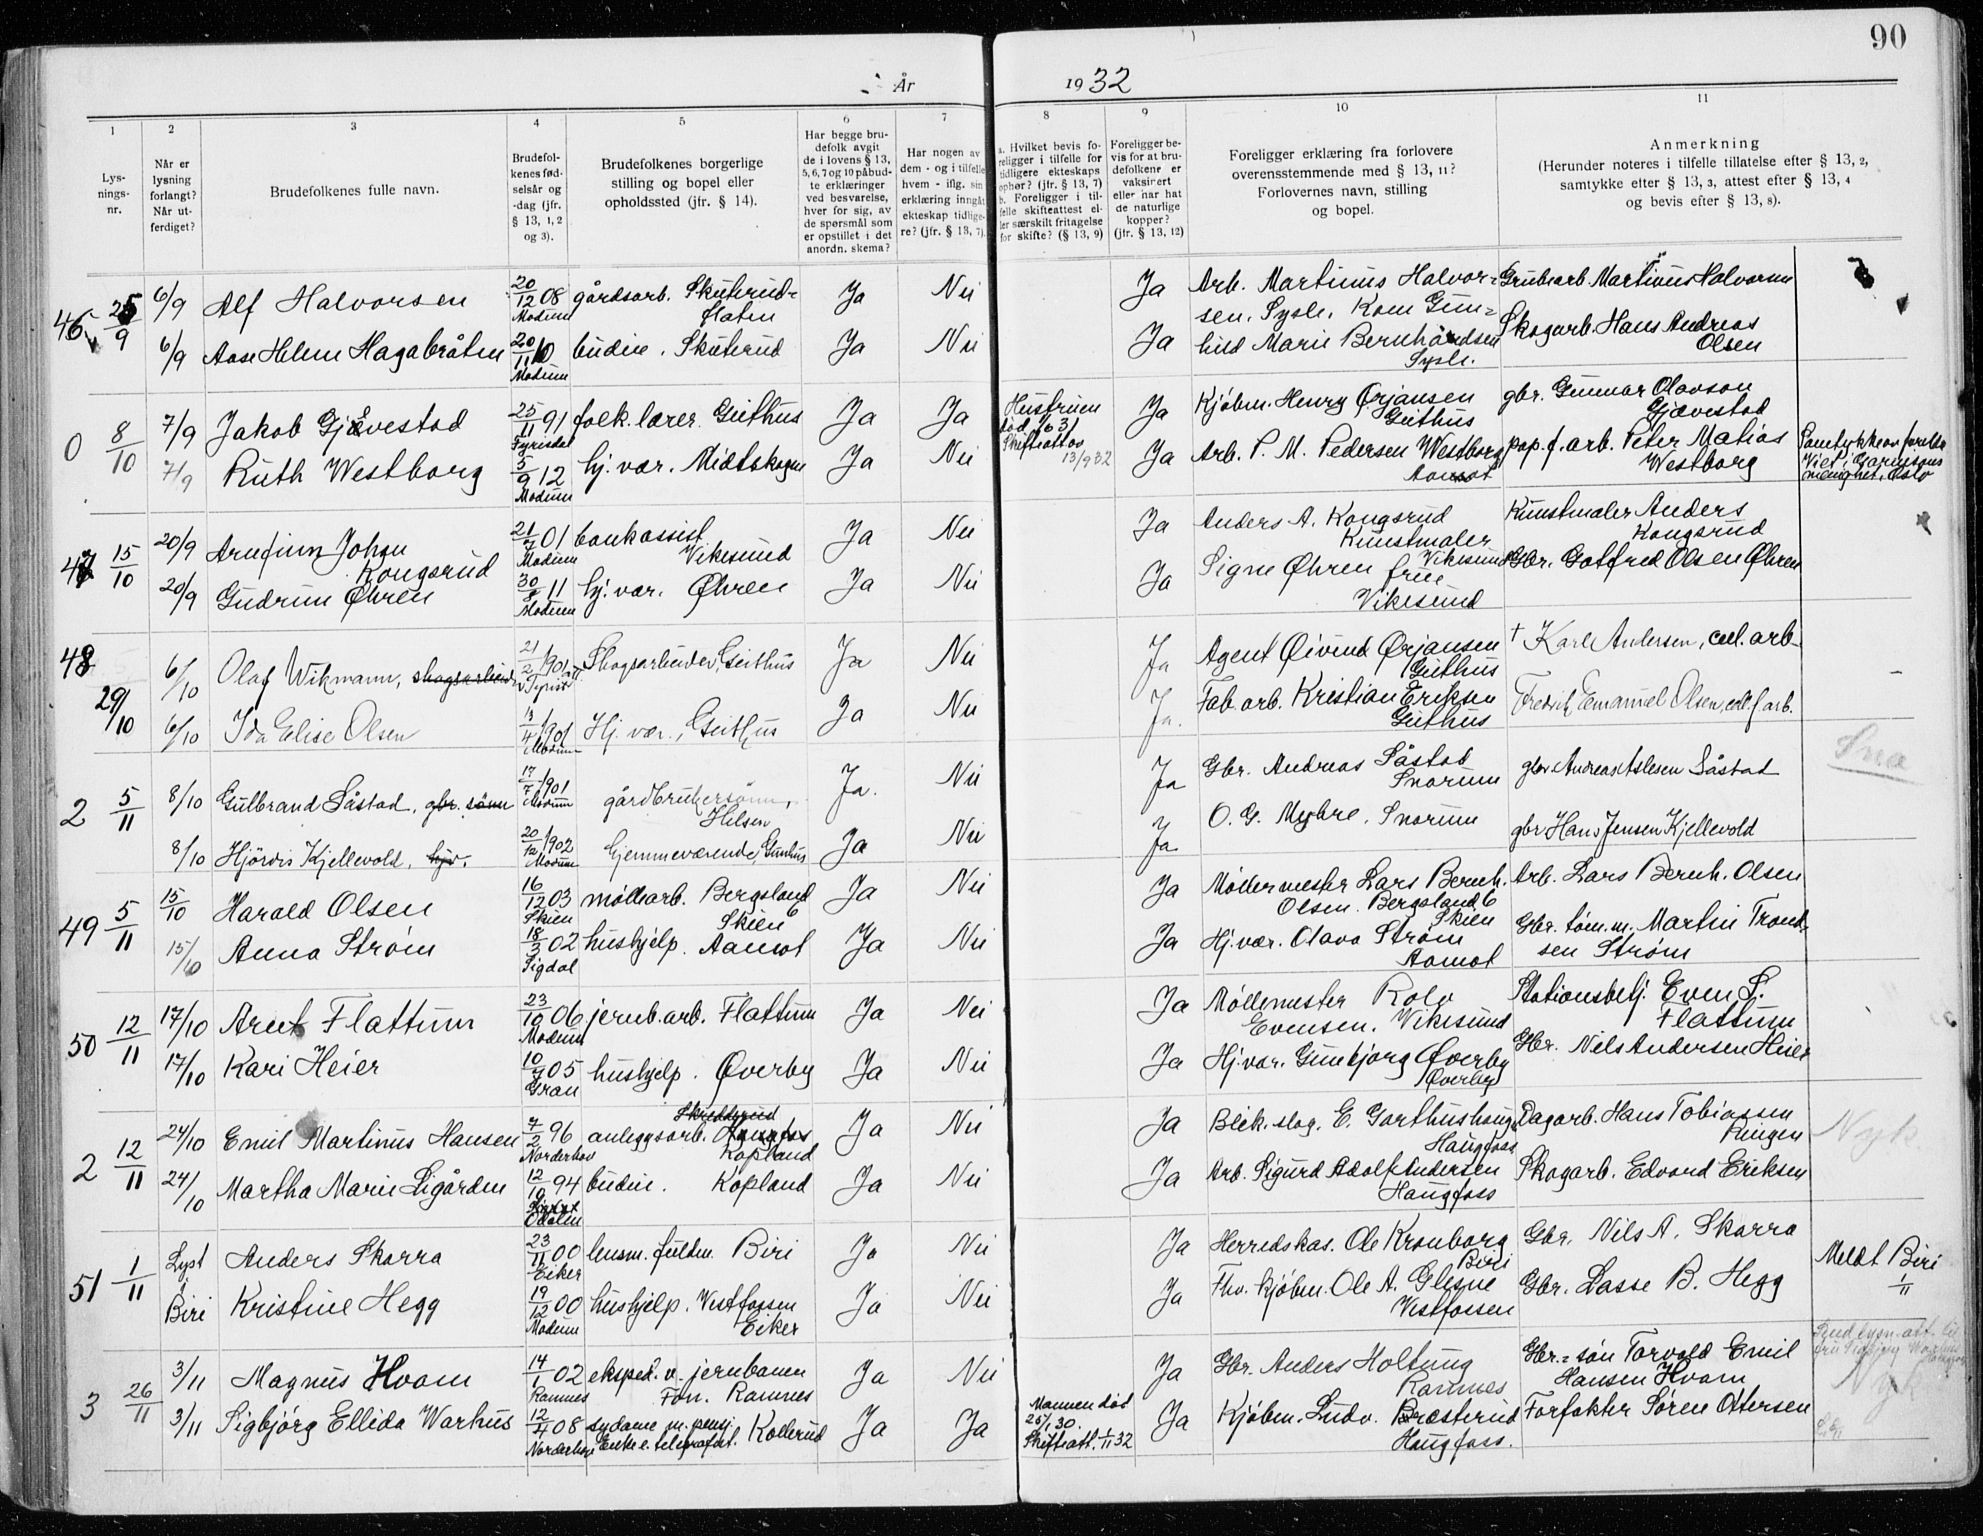 90
År 1932
1 2 3 4 5 6 7 8 9 10 11
Lys-
nings-
nr.
Når er
lysning
forlangt?
Når ut-
ferdiget?
Brudefolkenes fulle navn.
Brudefol-
kenes fød-
selsår og
-dag (jfr.
§ 13, 1, 2
og 3).
Brudefolkenes borgerlige
stilling og bopel eller
opholdssted (jfr. § 14).
Har begge bru-
defolk avgit
de i lovens § 13,
5, 6, 7 og 10 påbud-
te erklæringer
ved besvarelse,
hver for sig, av
de spørsmål som
er opstillet i det
anordn. skema?
Har nogen av
dem - og i tilfelle
hvem - iflg. sin
erklæring inngått
ekteskap tidlige-
re? (jfr. § 13, 7).
a. Hvilket bevis fo-
religger i tilfelle for
tidligere ekteskaps
ophør? (jfr. § 13, 7)
b. Foreligger i til-
felle skifteattest el-
ler særskilt fritagelse
for skifte? (§ 13, 9)
Foreligger be-
vis for at bru-
defolkene er
vaksinert
eller har hat
de naturlige
kopper?
(jfr. § 13, 12)
Foreligger erklæring fra forlovere
overensstemmende med § 13, 11?
Forlovernes navn, stilling
og bopel.
Anmerkning
(Herunder noteres i tilfelle tillatelse efter § 13, 2,
samtykke efter § 13, 3, attest efter § 13, 4
og bevis efter § 13, 8).
46 25/9 6/9 Alf Halvorsen 20/12 08 Modum gårdsarb. Skuterud-
flaten Ja Nei Ja Arb. Martinus Halvor-
sen, Sysle. Grubearb. Martinus Halvorsen
6/9 Aase Helene Hagabråten 20/11 10 Modum budeie. Skuterud Ja Nei Ja Kom Gun-
hild Marie Bernhardsen
Sysle. Skogarb. Hans Andreas
Olsen
0 8/10 7/9 Jakob Gjævestad 25/11 91 Fyrisdal folk. lærer. Geithus Ja Ja Hustruen
død
Skifteatt. av
13/9 32 Ja Kjøbm. Henry Ørjansen
Geithus gbr. Gunnar Olavson
Gjævestad
7/9 Ruth Westborg 5/9 12 Modum hj. vær. Midtskogen Ja Nei Ja Arb. P. M. Pedersen Westborg
Aamot pap. f. arb. Peter Matias
Westborg Samtykke av foreldre
Viet i Garnisons
menighet, Oslo
47 15/10 20/9 Arnfinn Johan
Kongsrud 21/7 01 Modum bankassist
Vikesund Ja Nei Ja Anders A. Kongsrud
Kunstmaler
Vikesund Kunstmaler Anders
Kongsrud
20/9 Gudrun Øhren 30/8 11 Modum hj. vær. Øhren Ja Nei Ja Signe Øhren frue
Vikesund Gbr. Gotfred Olsen Øhren
48 29/10 6/10 Olaf Wikmann, skogsarbeider 21/2 1901 Skogsarbeider, Geithus Ja Nei Ja Agent Øivind Ørjansen
Geithus † Karl Andersen, cel. arb.
6/10 Ida Elise Olsen 13/4 1901 Modum Hj. vær., Geithus Ja Nei Ja. Fab. arb. Kristian Eriksen
Geithus Fredrik Emanuel Olsen, cel. f. arb.
2 5/11 8/10 Gulbrand Såstad, gbr. sønn 17/7 1901 Modum gårdbrukersønn,
Hilsen Ja. Nei Ja Gbr. Andreas Såstad
Snarum gbr Andreas Aslesen Såstad Sna
8/10 Hjördis Kjellevold, hjv. 20/12 1902 Modum hjemmeværende, Ja Nei Ja O. G. Myhre. Snarum gbr Hans Jensen Kjellevold
49 5/11 15/10 Harald Olsen 16/12 03 Skien møllearb. Bergsland 6
Skien Ja Nei Ja Møllermester Lars Bernh.
Olsen. Bergsland 6
Skien Arb. Lars Bernh. Olsen
15/10 Anna Strøm 18/3 02 Sigdal hushjelp. Aamot Ja Nei Ja Hj. vær. Olava Strøm
Aamot Gbr. tøm. m. Martin Trond-
sen Strøm
50 12/11 17/10 Arnt Flattum 23/10 06 Modum jernb. arb. Flattum Ja Nei Ja Møllemester Rolv
Evensen. Vikesund Stationsbetj. Even S.
Flattum
17/10 Kari Heier 10/7 05 Gran hushjelp. Øverby Ja Nei Ja Hj. vær. Gunbjørg Øverby
Øverby Gbr. Nils Andersen Heier
2 12/11 24/10 Emil Martinus Hansen 7/2 96 Norderhov anleggsarb. Skreddsrud
Haugfos
Kopland Ja Nei Ja Blik. slag. E. Garthushaug
Haugfoss Dagarb. Hans Tobiassen
Ringen Nyk
24/10 Martha Marie Ligården 12/10 94 Odalen budeie. Kopland Ja Nei Ja Arb. Sigurd Adolf Andersen
Haugfoss Skogarb. Edvard Eriksen
51 1/11 Lyst
i
Biri Anders Skarra 23/11 00 Eiker lensm. fullm. Biri Ja Nei Ja Herredskas. Ole Kronborg
Biri Gbr. Nils A. Skarra Meldt Biri
1/11
Kristine Hegg 19/12 00 Modum hushjelp. Vestfossen
Eiker Ja Nei Ja Fhv. kjøbm. Ole A. Glesne
Vestfossen Gbr. Lasse B. Hegg
3 26/11 3/11 Magnus Hvam 14/1 02 Ramnes eksped. v. jernbanen
Fon. Ramnes Ja Nei Ja Gbr. Anders Holtung
Ramnes Gbr.-søn Torvald Emil
Hansen Hvam Nyk
3/11 Sigbjörg Ellida Warhus 12/4 08 Norderhov sydame m. pensj.
Enke e. telegrafist. Kollerud Ja Ja Mannen død
25/1 30.
Skifteatt. 1/11 32 Ja Kjøbm. Ludv. Bræsterud
Haugfoss. Forfakter Søren Ottersen